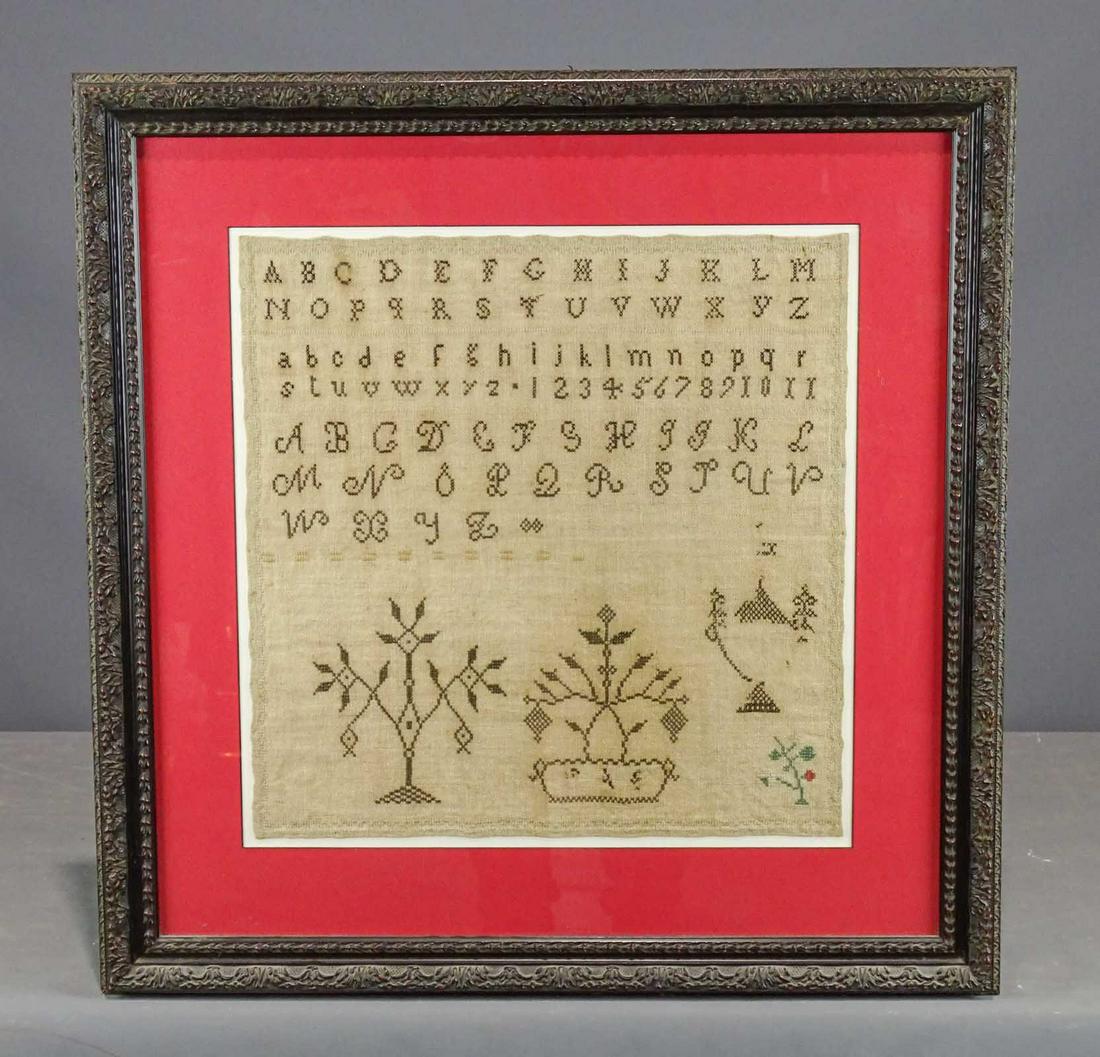 A B C D E F G H I J K L M
N O P q R S T U V W X Y Z
a b c d e f g h i j k l m n o p q r
s t u v w x y z · 1 2 3 4 5 6 7 8 9 10 11
A B C D E F G H I J K L
M N O P Q R S T U V
W X Y Z